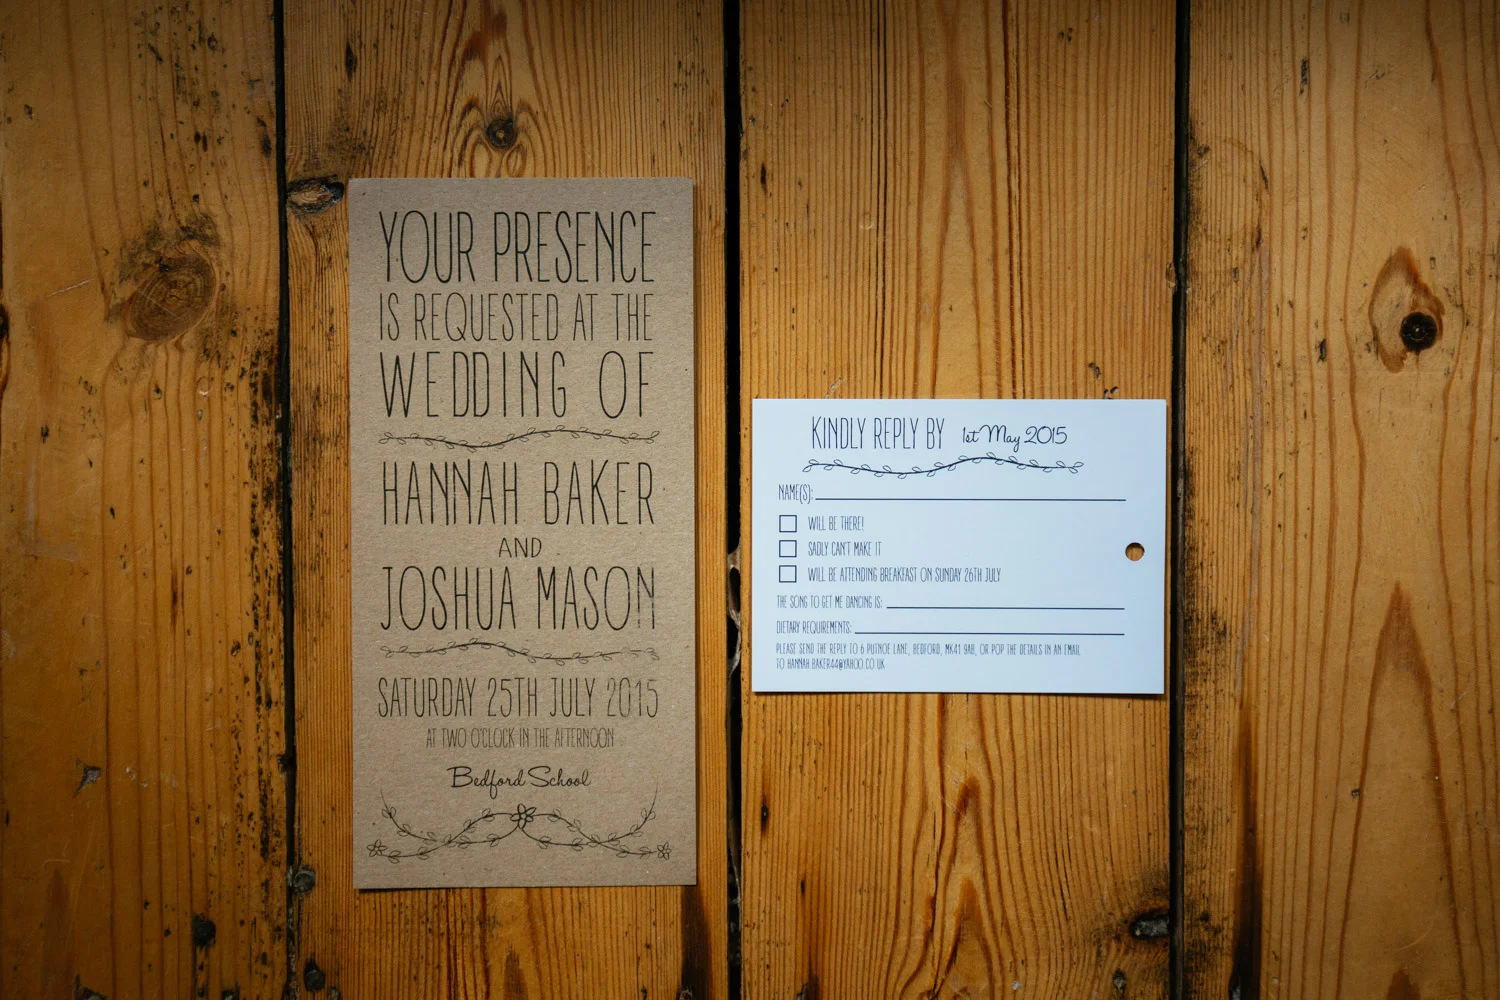 YOUR PRESENCE
IS REQUESTED AT THE
WEDDING OF
HANNAH BAKER
AND
JOSHUA MASON
SATURDAY 25TH JULY 2015
AT TWO O'CLOCK IN THE AFTERNOON
Bedford School
KINDLY REPLY BY 1st May 2015
NAME(S):
WILL BE THERE!
SADLY CAN'T MAKE IT
WILL BE ATTENDING BREAKFAST ON SUNDAY 26TH JULY
THE SONG TO GET ME DANCING IS:
DIETARY REQUIREMENTS:
PLEASE SEND THE REPLY TO 6 PUTNOE LANE, BEDFORD, MK41 9AB, OR POP THE DETAILS IN AN EMAIL
TO HANNAH.BAKER44@YAHOO.CO.UK